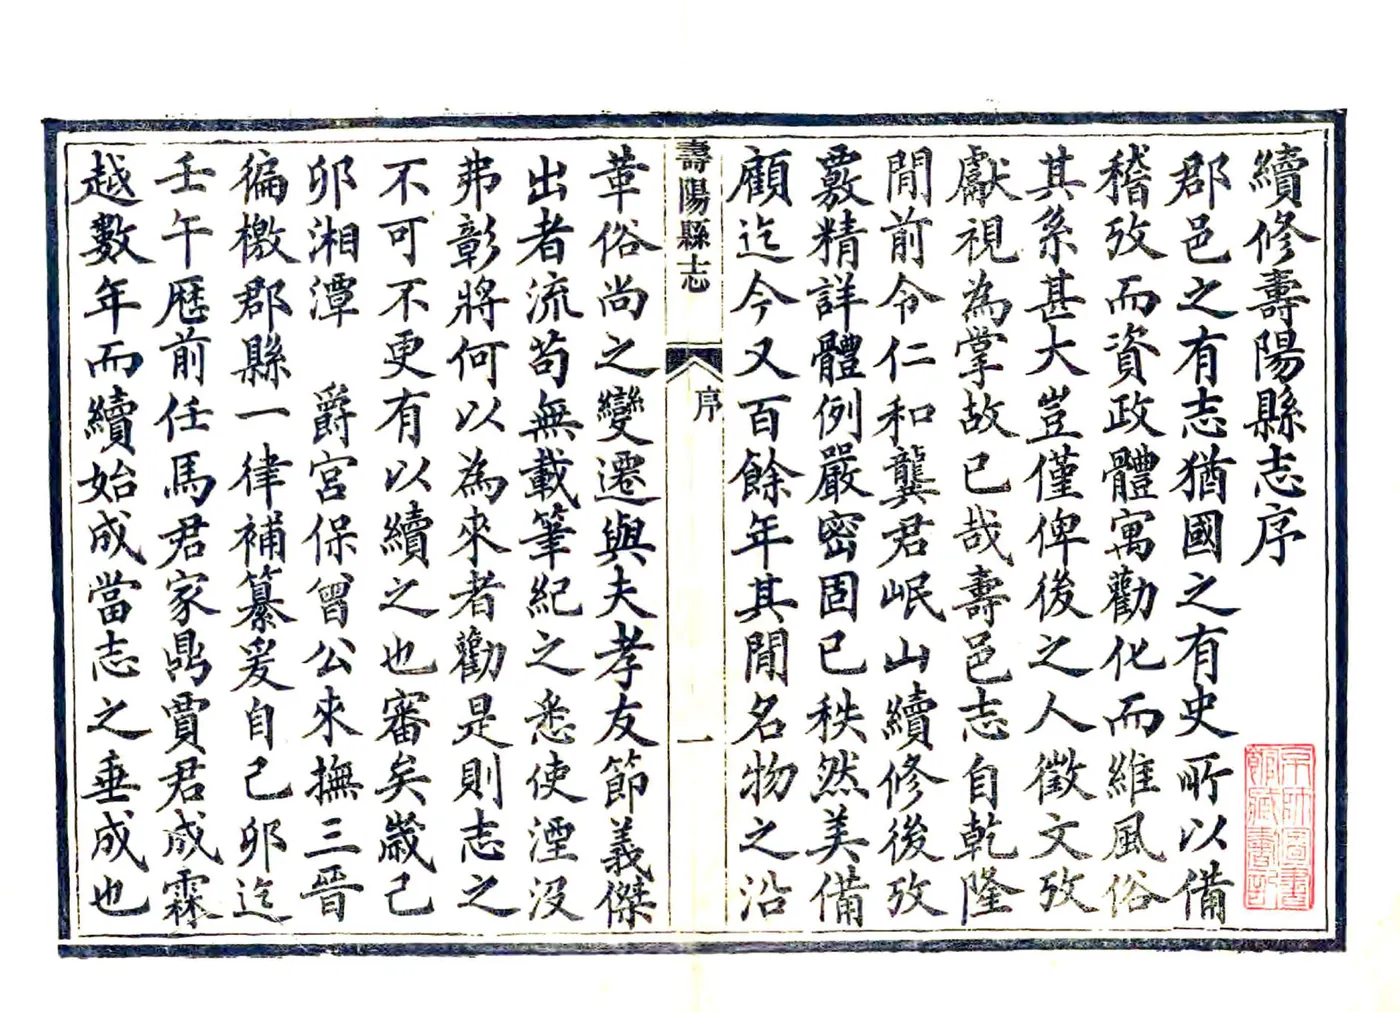 續修壽陽縣志序
郡邑之有志猶國之有史所以備
稽攷而資政體寓勸化而維風俗
其系甚大豈僅俾後之人徵文攷
獻視為掌故已哉壽邑志自乾隆
閒前令仁和龔君岷山續修後攷
覈精詳體例嚴密固已秩然美備
顧迄今又百餘年其閒名物之沿
壽陽縣志
序
一
革俗尚之變遷與夫孝友節義傑
出者流苟無載筆紀之悉使湮沒
弗彰將何以為來者勸是則志之
不可不更有以續之也審矣歲己
卯湘潭 爵宮保曾公來撫三晉
徧檄郡縣一律補纂爰自己卯迄
壬午歷前任馬君家鼎賈君成霖
越數年而續始成當志之垂成也
京師圖書
館藏書記